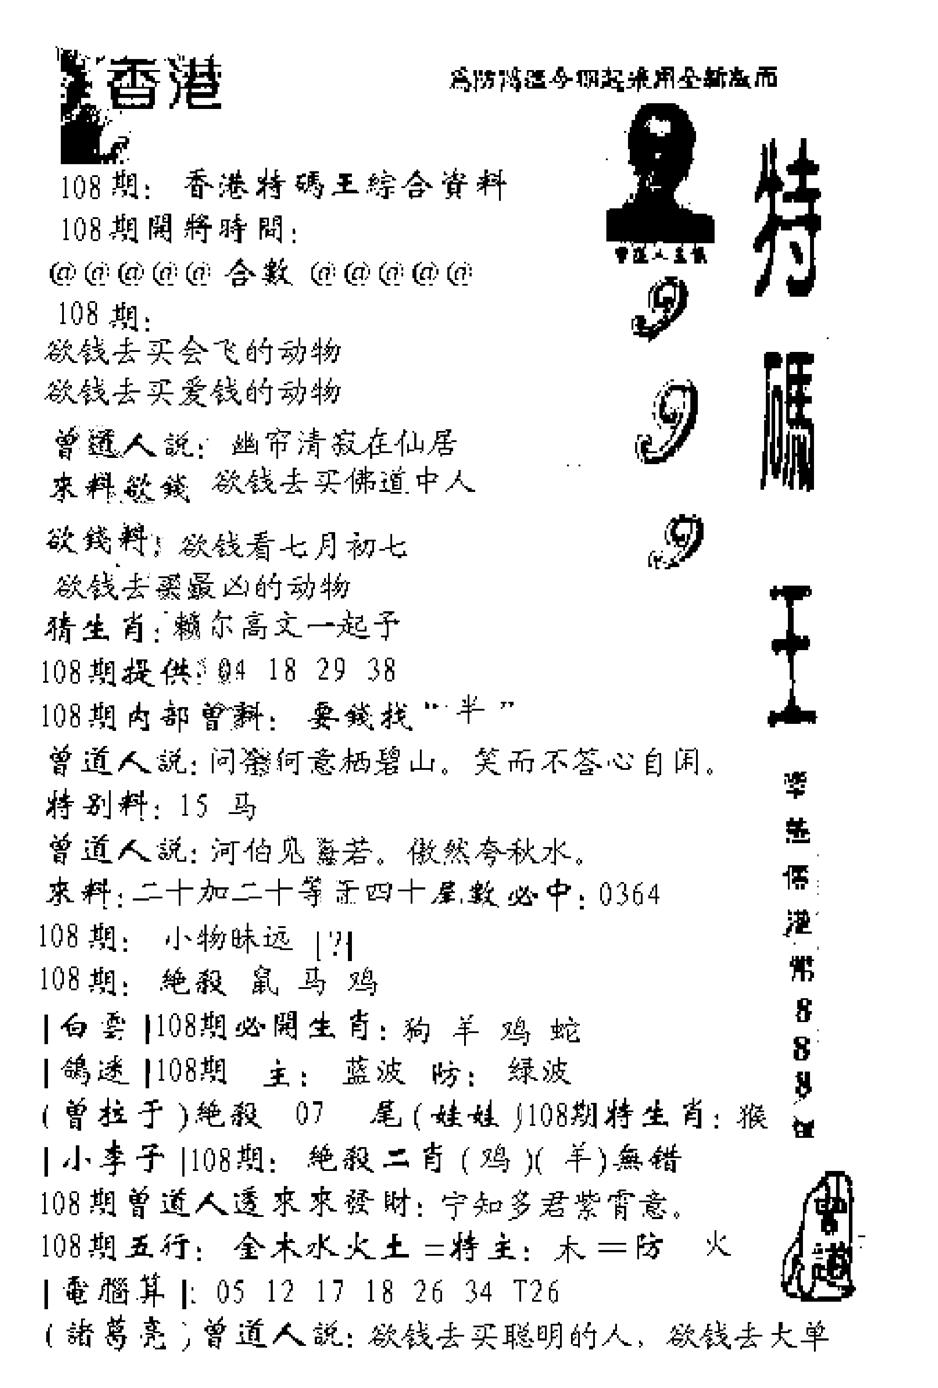 香港
108期：香港特碼王綜合資料
108期開將時間：
@@@@@合數@@@@@
108期：
欲钱去买会飞的动物
欲钱去买爱钱的动物
曾道人説：幽帘清寂在仙居
來料欲錢 欲钱去买佛道中人
欲錢料：欲钱看七月初七
欲钱去买最凶的动物
猜生肖：赖尔高文一起予
108期提供：04 18 29 38
108期内部曾料：要錢找“半”
曾道人説：问爾何意栖碧山。笑而不答心自闲。
特别料：15 马
曾道人説：河伯见海若。傲然夸秋水。
來料：二十加二十等于四十尾數必中：0364
108期：小物昧远 |?|
108期：絶殺 鼠 马 鸡
|白雲|108期必開生肖：狗 羊 鸡 蛇
|鴿迷|108期 主：蓝波 防：绿波
(曾拉于)絶殺 07 尾(娃娃)108期特生肖：猴
|小李子|108期：絶殺二肖(鸡)(羊)無错
108期曾道人透來來發財：宁知多君紫霄意。
108期五行：金木水火土=特主：木=防 火
|電腦算|：05 12 17 18 26 34 T26
(諸葛亮)曾道人説：欲钱去买聪明的人，欲钱去大单
9
9
9
特
碼
王
港
幣
8
8
8
曾
道